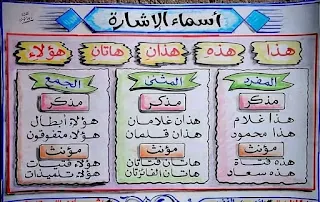 أسماء الإشارة
هذا هذه هذان هاتان هؤلاء
المفرد المثنى الجمع
مذكر مذكر مذكر
هذا غلام هذان غلامان هؤلاء أبطال
هذا محمود هذان قلمان هؤلاء متفوقون
مؤنث مؤنث مؤنث
هذه فتاة هاتان فتاتان هؤلاء فتيات
هذه سعاد هاتان الفائزتان هؤلاء تلميذات